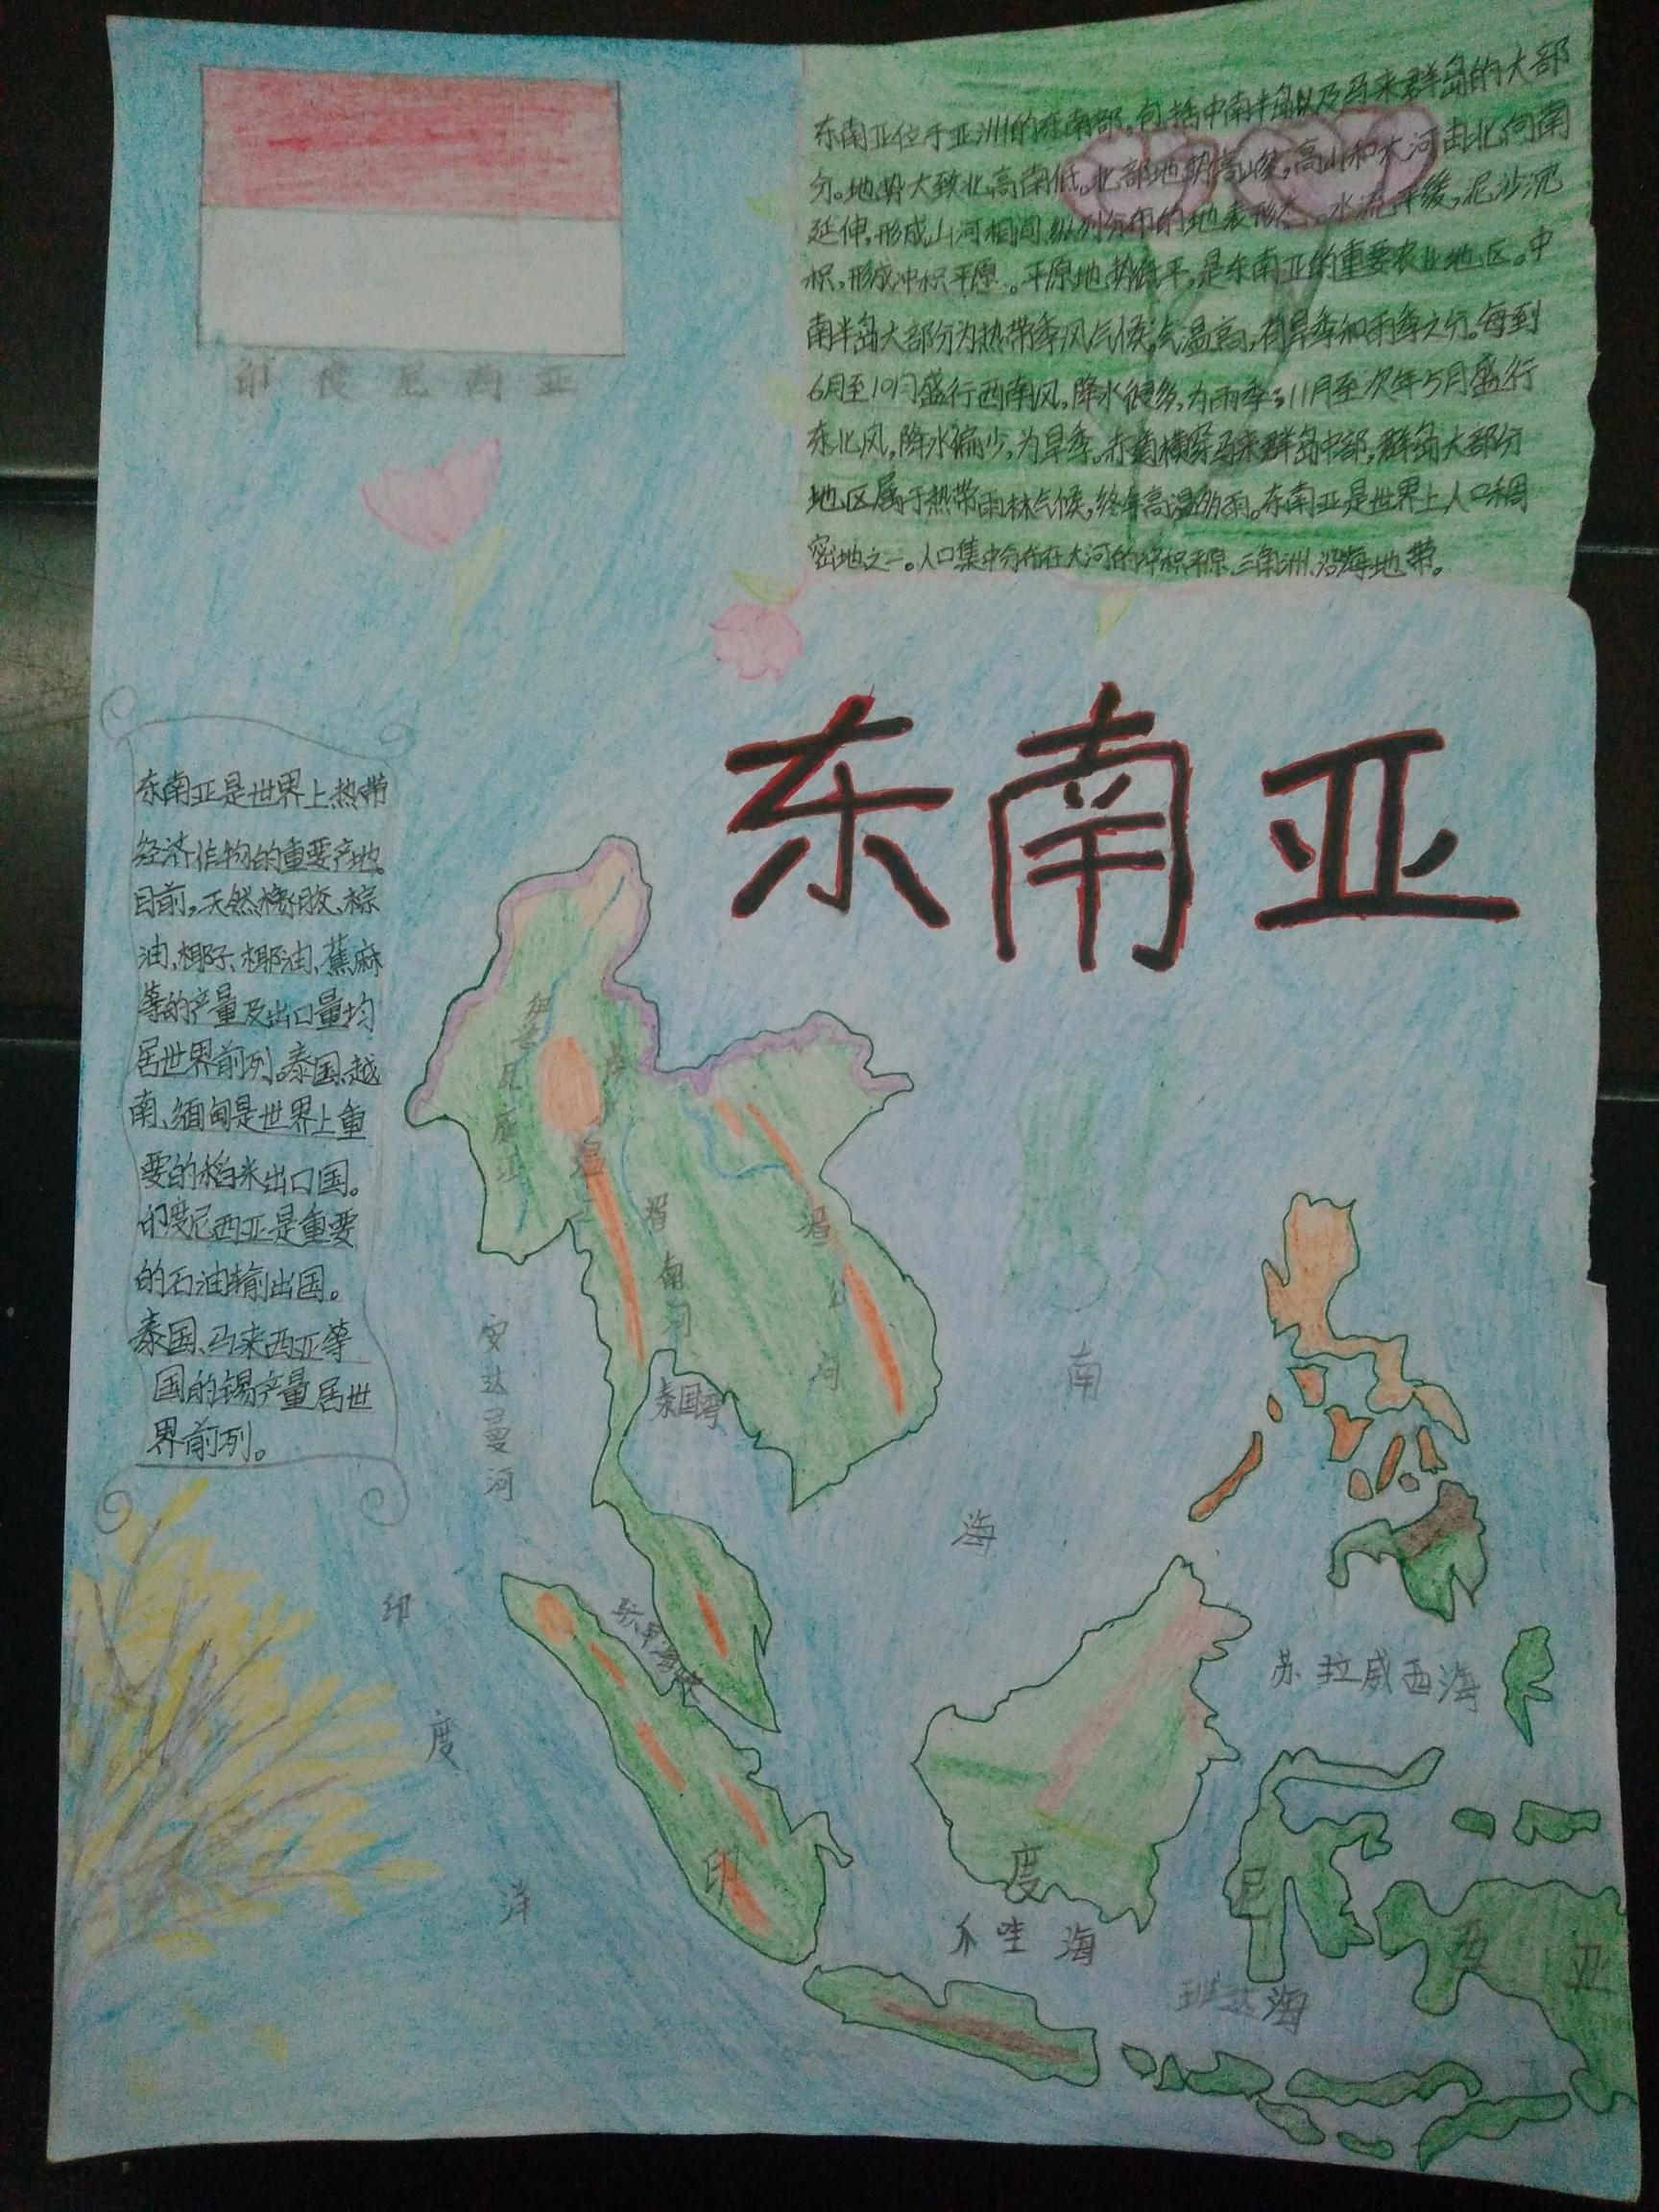 印度尼西亚
东南亚位于亚洲的东南部,包括中南半岛以及马来群岛的大部
分。地势大致北高南低。北部地势高峻,高山和大河由北向南
延伸,形成山河相间、纵列分布的地表形态。水流平缓,泥沙沉
积,形成冲积平原。平原地势低平,是东南亚的重要农业地区。中
南半岛大部分为热带季风气候,气温高,有旱季和雨季之分。每到
6月至10月盛行西南风,降水很多,为雨季;11月至次年5月盛行
东北风,降水偏少,为旱季。赤道横穿马来群岛中部,群岛大部分
地区属于热带雨林气候,终年高温多雨。东南亚是世界上人口稠
密地之一。人口集中分布在大河的冲积平原、三角洲、沿海地带。
东南亚
东南亚是世界上热带
经济作物的重要产地。
目前,天然橡胶、棕
油、椰子、椰油、蕉麻
等的产量及出口量均
居世界前列。泰国、越
南、缅甸是世界上重
要的稻米出口国。
印度尼西亚是重要
的石油输出国。
泰国、马来西亚等
国的锡产量居世
界前列。
伊洛瓦底江
萨尔温
湄南河
湄公河
安达曼河
泰国湾
南海
马六甲海峡
印度洋
苏拉威西海
印度尼西亚
爪哇海
班达海